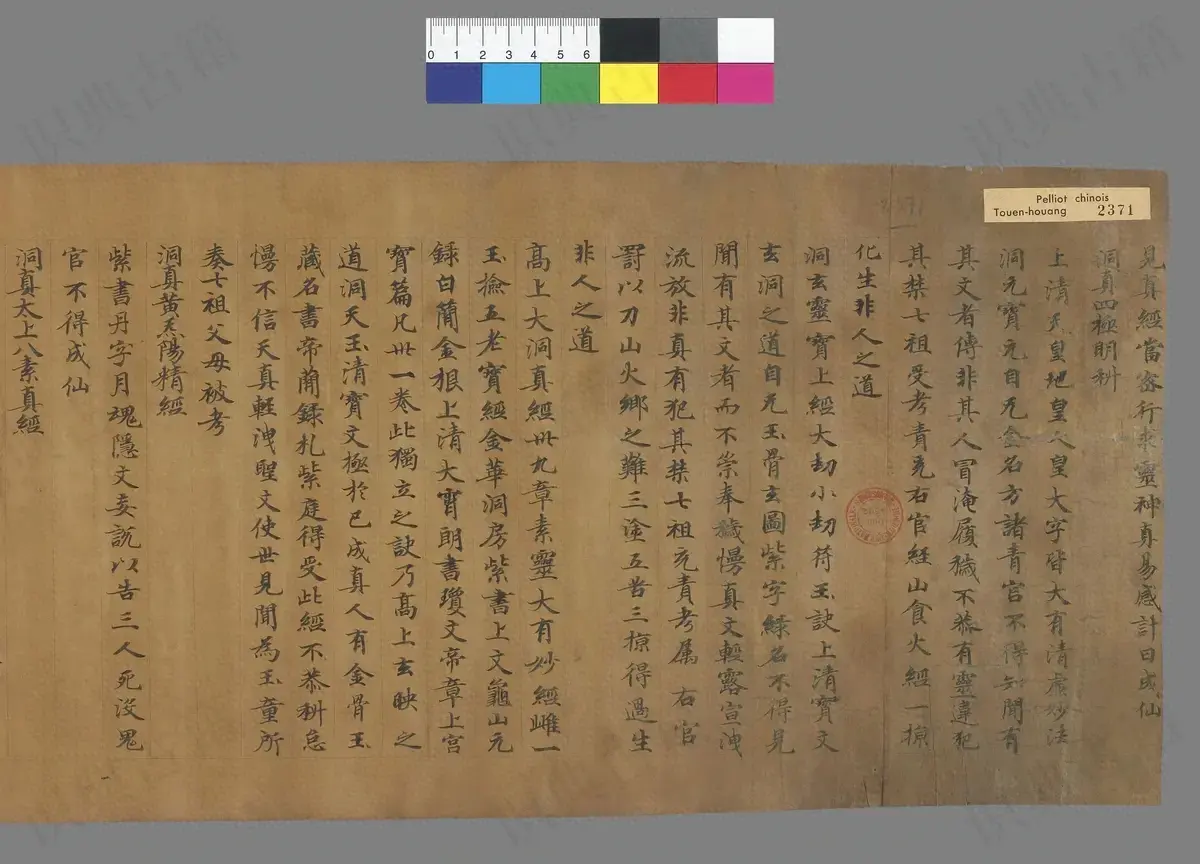 Pelliot chinois
Touen-houang 2371
0 1 2 3 4 5 6
見真經當密行求靈神真易感計日成仙
洞真四極明科
上清天皇地皇人皇大字皆大有清虛妙法
洞元寶元自无金名方諸青宫不得知聞有
其文者傳非其人冒淹履穢不恭有靈違犯
其禁七祖受考責于右官經山食火經一掠
化生非人之道
洞玄靈寶上經大劫小劫符玉訣上清寶文
玄洞之道自无玉骨玄圖紫字緑名不得見
聞有其文者而不崇奉穢慢真文輕露宣洩
流放非真有犯其禁七祖充責考属右官
罸以刀山火鄉之難三塗五苦三掠得過生
非人之道
高上大洞真經卅九章素靈大有妙經雌一
玉撿五老寶經金華洞房紫書上文龜山元
録白蕳金根上清大霄朗書瓊文帝章上宫
寶篇凡卅一卷此獨立之訣乃高上玄映之
道洞天玉清寶文極於已成真人有金骨玉
藏名書帝蕳録札紫庭得受此經不恭科怠
慢不信天真輕洩聖文使世見聞為玉童所
奏七祖父母被考
洞真黄炁陽精經
紫書丹字月魂隱文妄說以告三人死没鬼
官不得成仙
洞真太上八素真經